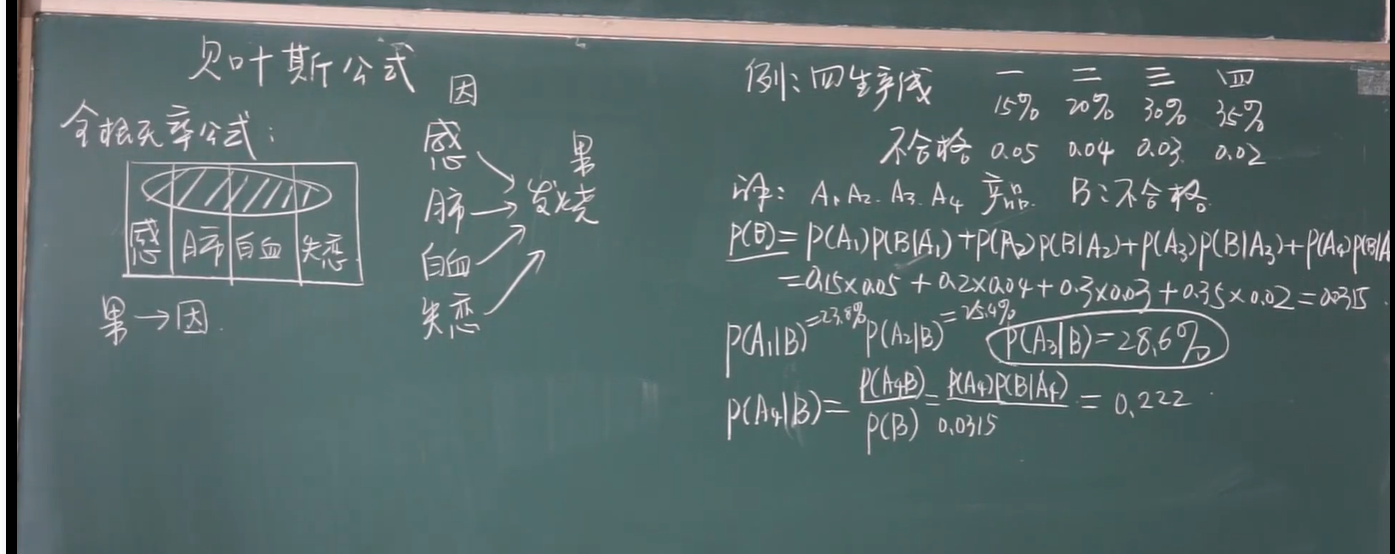 贝叶斯公式
全概率公式:
感 肺 白血 失恋
果→因
因
感
肺
白血
失恋
果
发烧
例:四生产线 一 二 三 四
15% 20% 30% 35%
不合格 0.05 0.04 0.03 0.02
A₁ A₂ A₃ A₄ 产品 B:不合格
P(B)=P(A₁)P(B|A₁)+P(A₂)P(B|A₂)+P(A₃)P(B|A₃)+P(A₄)P(B|A
=0.15×0.05+0.2×0.04+0.3×0.03+0.35×0.02=0.0315
P(A₁|B)=23.8% P(A₂|B)=25.4% P(A₃|B)=28.6%
P(A₄|B)=P(A₄B)/P(B)=P(A₄)P(B|A₄)/0.0315=0.222